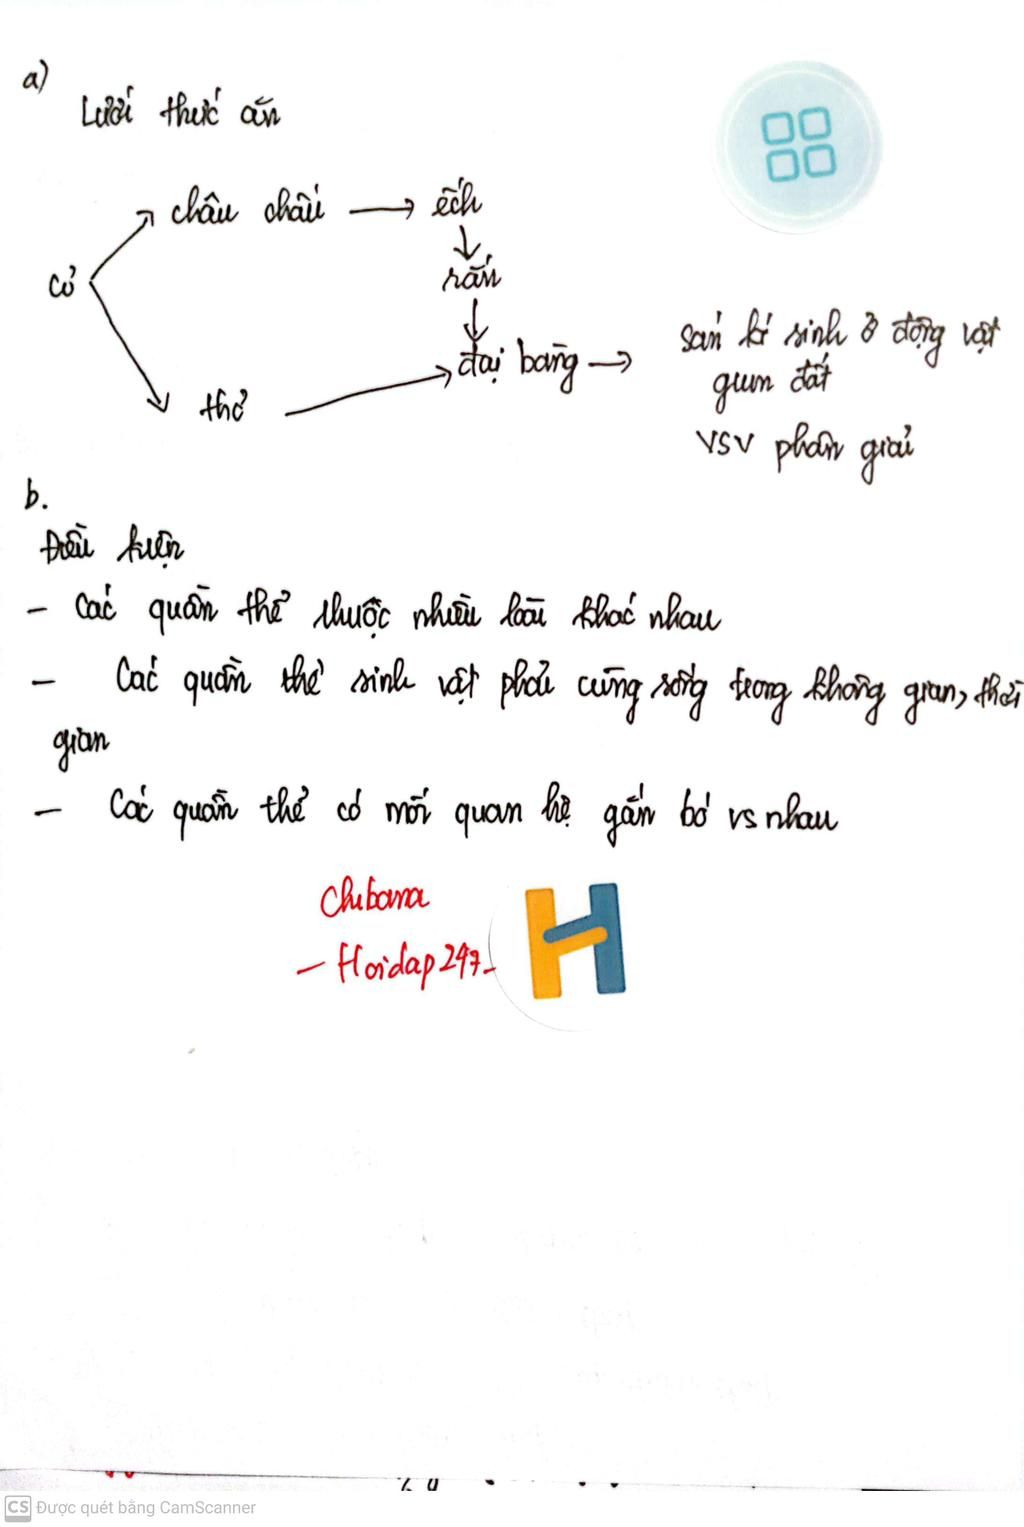 a)
Lưới thức ăn
châu chấu → ếch
cỏ
rắn
thỏ → đại bàng → sán kí sinh ở động vật
giun đất
VSV phân giải
b.
Điều kiện
- Các quần thể thuộc nhiều loài khác nhau
- Các quần thể sinh vật phải cùng sống trong không gian, thời
gian
- Các quần thể có mối quan hệ gắn bó vs nhau
Chibana
- Hoidap247-
H
CS Được quét bằng CamScanner